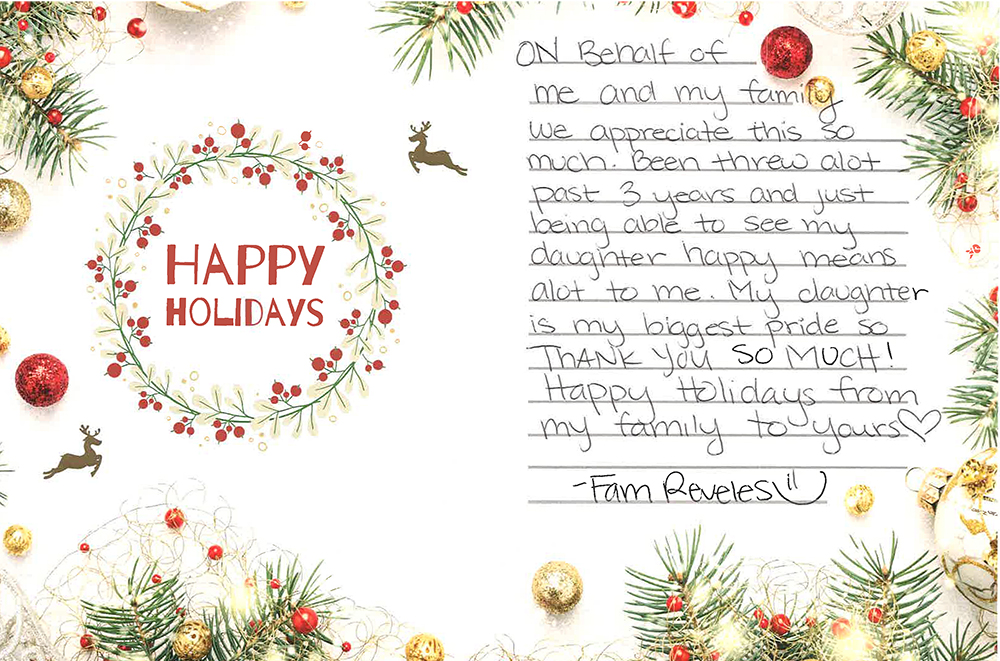 HAPPY
HOLIDAYS
ON Behalf of
me and my family
we appreciate this so
much. Been threw alot
past 3 years and just
being able to see my
daughter happy means
alot to me. My daughter
is my biggest pride so
THANK YOU SO MUCH!
Happy Holidays from
my family to yours♡
-Fam Reveles